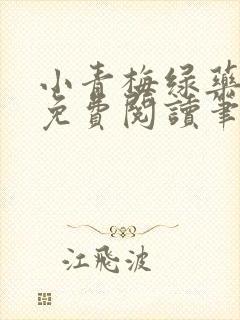 小青梅绿药
免費閱讀筆
江飛波